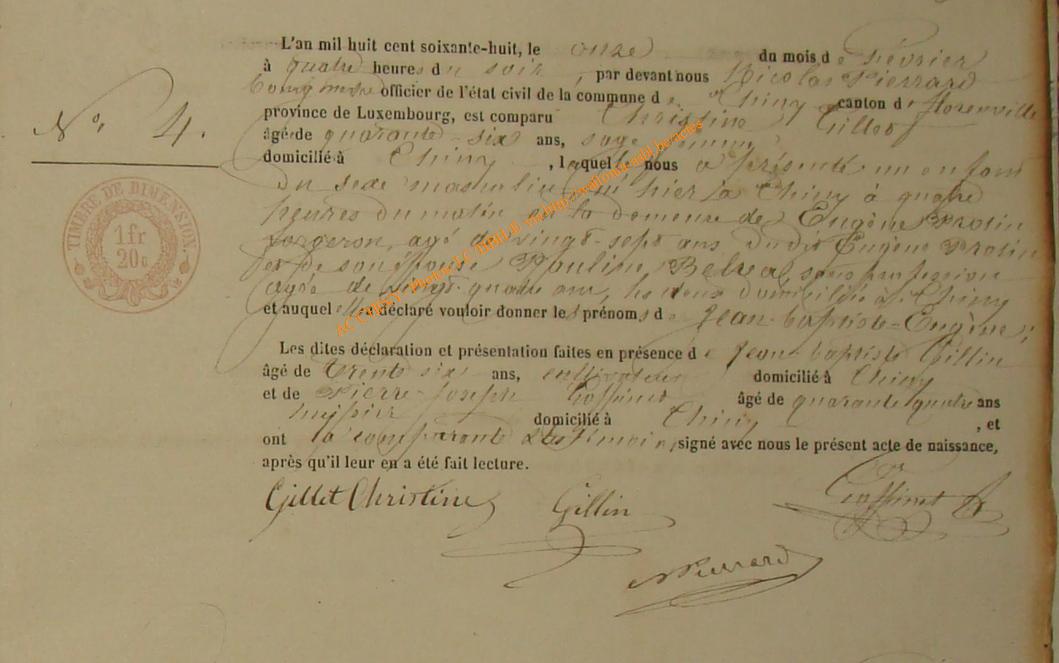 L'an mil huit cent soixante-huit, le onze du mois de février
à quatre heures du soir, par devant nous Nicolas Pierrard
Bourgmestre officier de l'état civil de la commune de Chiny canton de Florenville
province de Luxembourg, est comparu Christine Gillet
âgé de quarante-six ans, sage femme
N° 4.
domicilié à Chiny, laquelle nous a présenté un enfant
du sexe masculin né hier à Chiny à quatre
heures du matin en la demeure de Eugène Protin
forgeron, agé de vingt-sept ans dudit Eugène Protin
et de son épouse Pauline Belva, sans profession
agée de vingt quatre ans, les deux domiciliés à Chiny
et auquel elle a déclaré vouloir donner les prénoms de Jean-baptiste-Eugène,
Les dites déclaration et présentation faites en présence de Jean-baptiste Gillin
âgé de trente six ans, cultivateur domicilié à Chiny
et de Pierre-Joseph Goffinet âgé de quarante quatre ans
huissier domicilié à Chiny, et
ont la comparante & les témoins, signé avec nous le présent acte de naissance,
après qu'il leur en a été fait lecture.
Gillet Christine Gillin Goffinet
NPierrard
TIMBRE DE DIMENSION.
1 fr
20 c